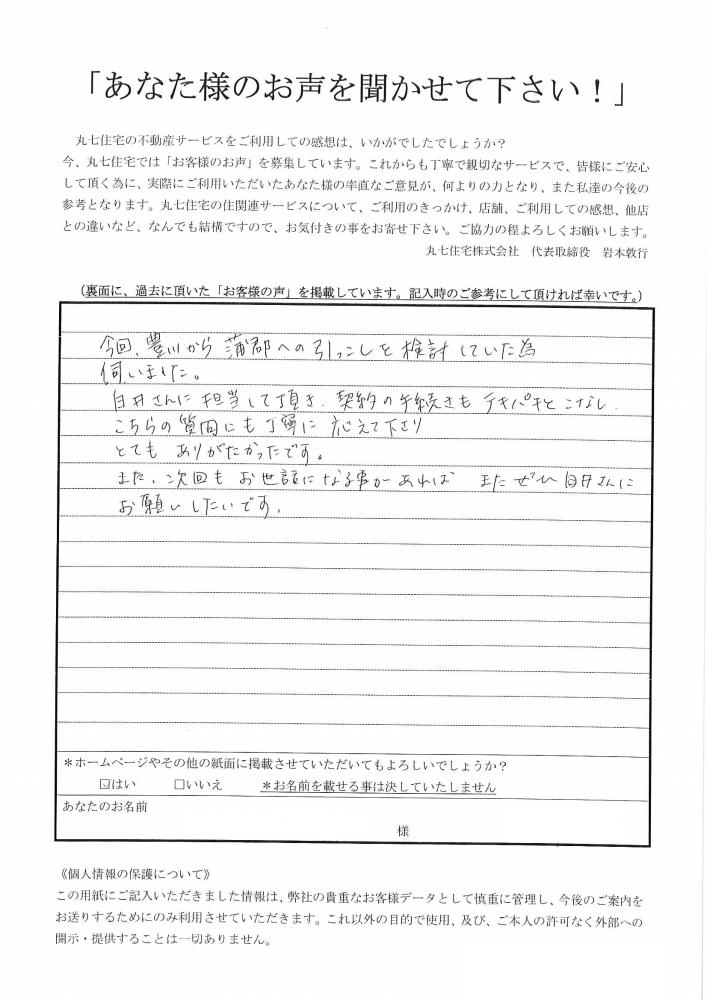 「あなた様のお声を聞かせて下さい！」
丸七住宅の不動産サービスをご利用しての感想は、いかがでしたでしょうか？
今、丸七住宅では「お客様のお声」を募集しています。これからも丁寧で親切なサービスで、皆様にご安心
して頂く為に、実際にご利用いただいたあなた様の率直なご意見が、何よりの力となり、また私達の今後の
参考となります。丸七住宅の住関連サービスについて、ご利用のきっかけ、店舗、ご利用しての感想、他店
との違いなど、なんでも結構ですので、お気付きの事をお寄せ下さい。ご協力の程よろしくお願いします。
丸七住宅株式会社　代表取締役　岩本敦行
（裏面に、過去に頂いた「お客様の声」を掲載しています。記入時のご参考にして頂ければ幸いです。）
今回、豊川から 蒲郡への引っこしを検討していた為
伺いました。
白井さんに担当して頂き、契約の手続きもテキパキとこなし、
こちらの質問にも丁寧に応えて下さり
とても ありがたかったです。
また、次回も お世話になる事があれば またぜひ白井さんに
お願いしたいです。
＊ホームページやその他の紙面に掲載させていただいてもよろしいでしょうか？
☑はい　□いいえ　＊お名前を載せる事は決していたしません
あなたのお名前
様
《個人情報の保護について》
この用紙にご記入いただきました情報は、弊社の貴重なお客様データとして慎重に管理し、今後のご案内を
お送りするためにのみ利用させていただきます。これ以外の目的で使用、及び、ご本人の許可なく外部への
開示・提供することは一切ありません。